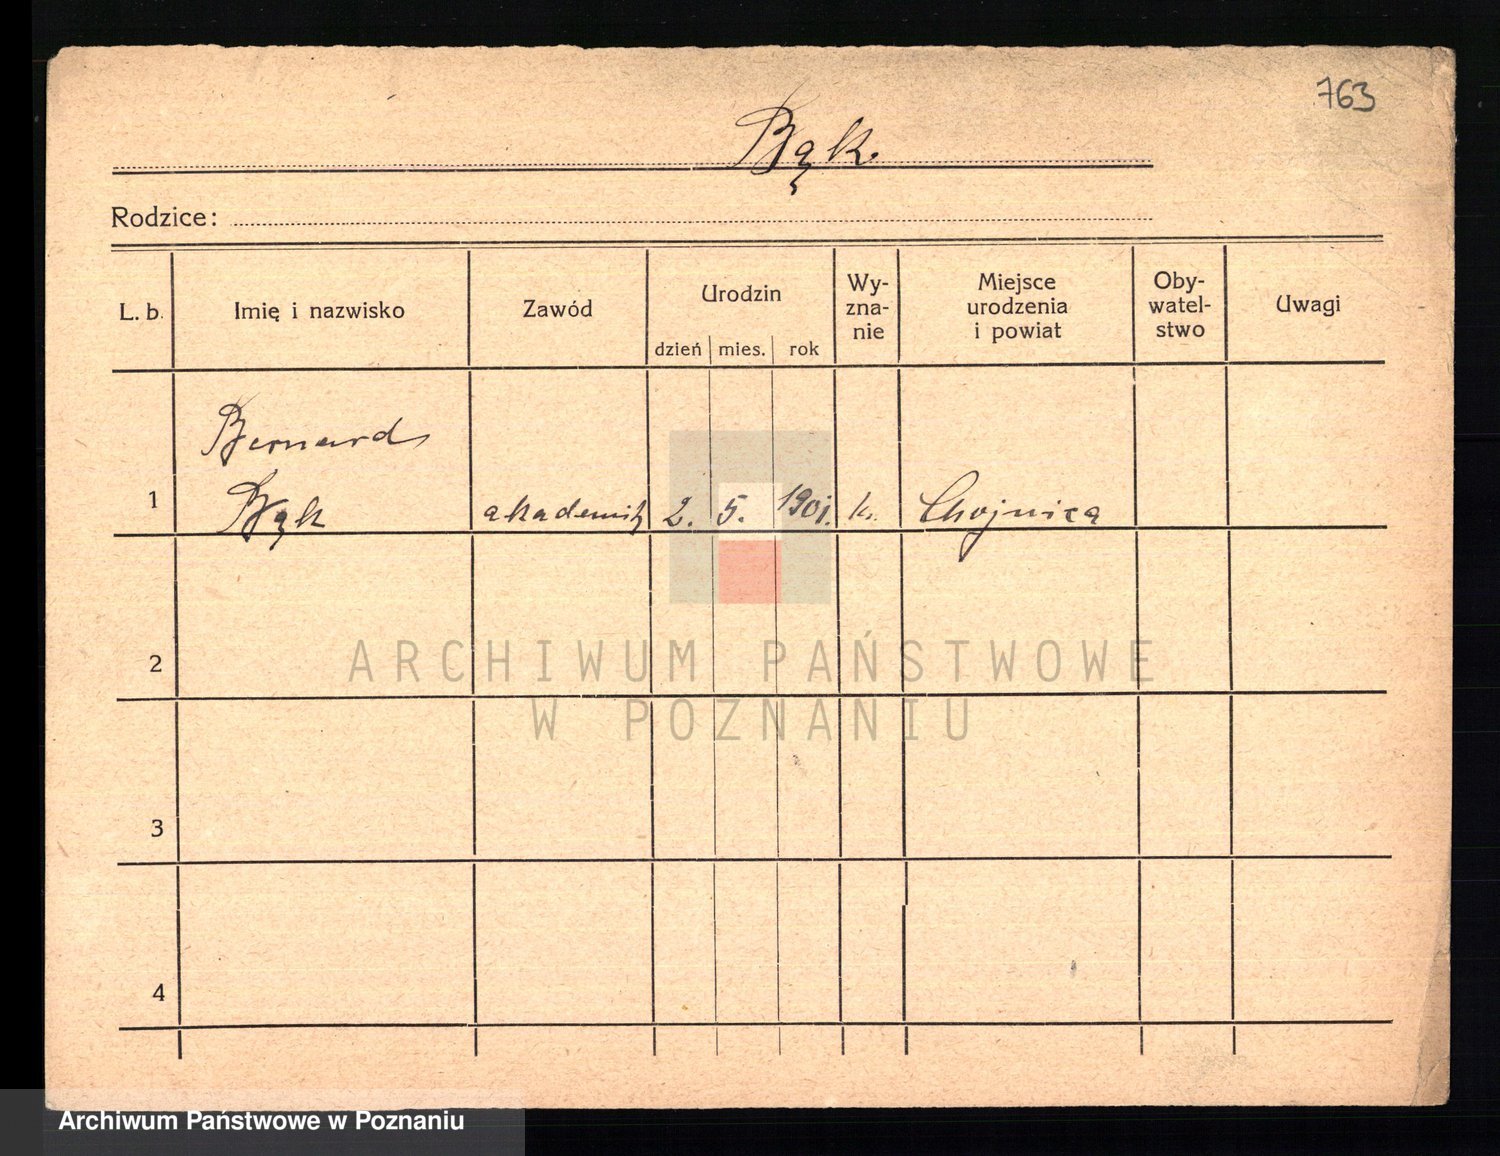 763
Bąk.
Rodzice:
L. b. Imię i nazwisko Zawód Urodzin dzień mies. rok Wy-zna-nie Miejsce urodzenia i powiat Oby-watel-stwo Uwagi
Bernard
1 Bąk akademik 2. 5. 1901. k. Chojnica
2
ARCHIWUM PAŃSTWOWE
W POZNANIU
3
4
Archiwum Państwowe w Poznaniu